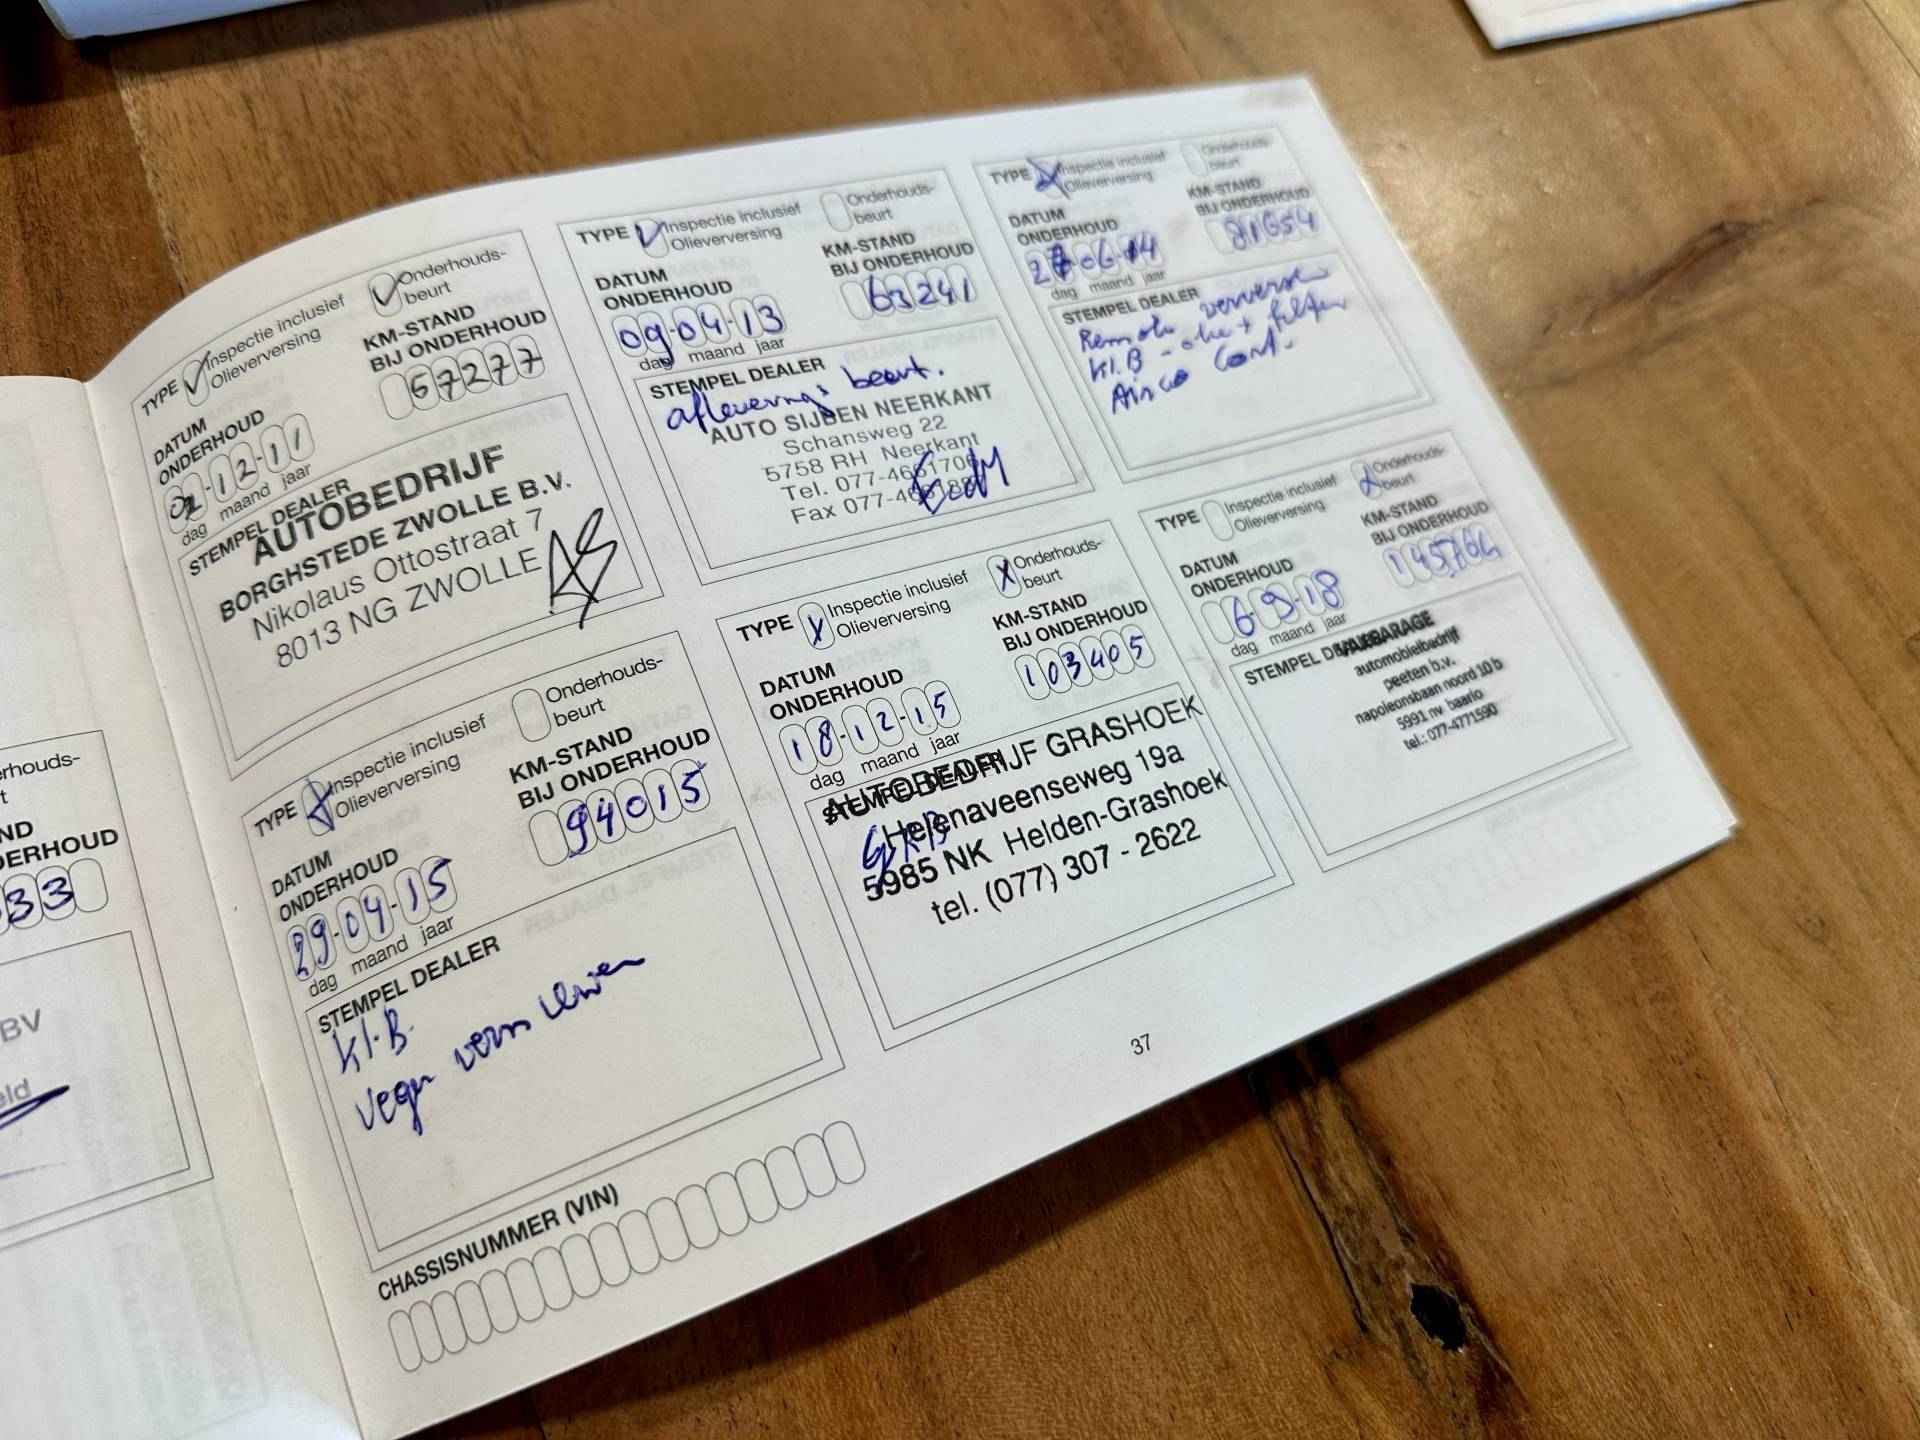 rhouds-
t
ND
DERHOUD
33
BV
eld
TYPE Inspectie inclusief
Olieverversing
Onderhouds-
beurt
DATUM
ONDERHOUD
KM-STAND
BIJ ONDERHOUD
67277
-12-11
dag maand jaar
STEMPEL DEALER
AUTOBEDRIJF
BORGHSTEDE ZWOLLE B.V.
Nikolaus Ottostraat 7
8013 NG ZWOLLE
TYPE Inspectie inclusief
Olieverversing
Onderhouds-
beurt
DATUM
ONDERHOUD
KM-STAND
BIJ ONDERHOUD
63241
09-04-13
dag maand jaar
STEMPEL DEALER
afleverings beurt.
AUTO SIJBEN NEERKANT
Schansweg 22
5758 RH Neerkant
Tel. 077-4661706
Fax 077-466
TYPE Inspectie inclusief
Olieverversing
Onderhouds-
beurt
DATUM
ONDERHOUD
KM-STAND
BIJ ONDERHOUD
81654
06-14
dag maand jaar
STEMPEL DEALER
Remolie verversen
Kl.B - olie + filter
Airco Cont.
TYPE Inspectie inclusief
Olieverversing
Onderhouds-
beurt
DATUM
ONDERHOUD
KM-STAND
BIJ ONDERHOUD
94015
29-04-15
dag maand jaar
STEMPEL DEALER
Kl.B.
TYPE Inspectie inclusief
Olieverversing
Onderhouds-
beurt
DATUM
ONDERHOUD
KM-STAND
BIJ ONDERHOUD
103405
18-12-15
dag maand jaar
STEMPEL DEALER
AUTOBEDRIJF GRASHOEK
Helenaveenseweg 19a
5985 NK Helden-Grashoek
tel. (077) 307 - 2622
TYPE Inspectie inclusief
Olieverversing
Onderhouds-
beurt
DATUM
ONDERHOUD
KM-STAND
BIJ ONDERHOUD
145766
6-9-18
dag maand jaar
STEMPEL DEALER
VAKGARAGE
automobielbedrijf
peeten b.v.
napoleonsbaan noord 10 b
5991 nv baarlo
tel.: 077-4771590
CHASSISNUMMER (VIN)
37